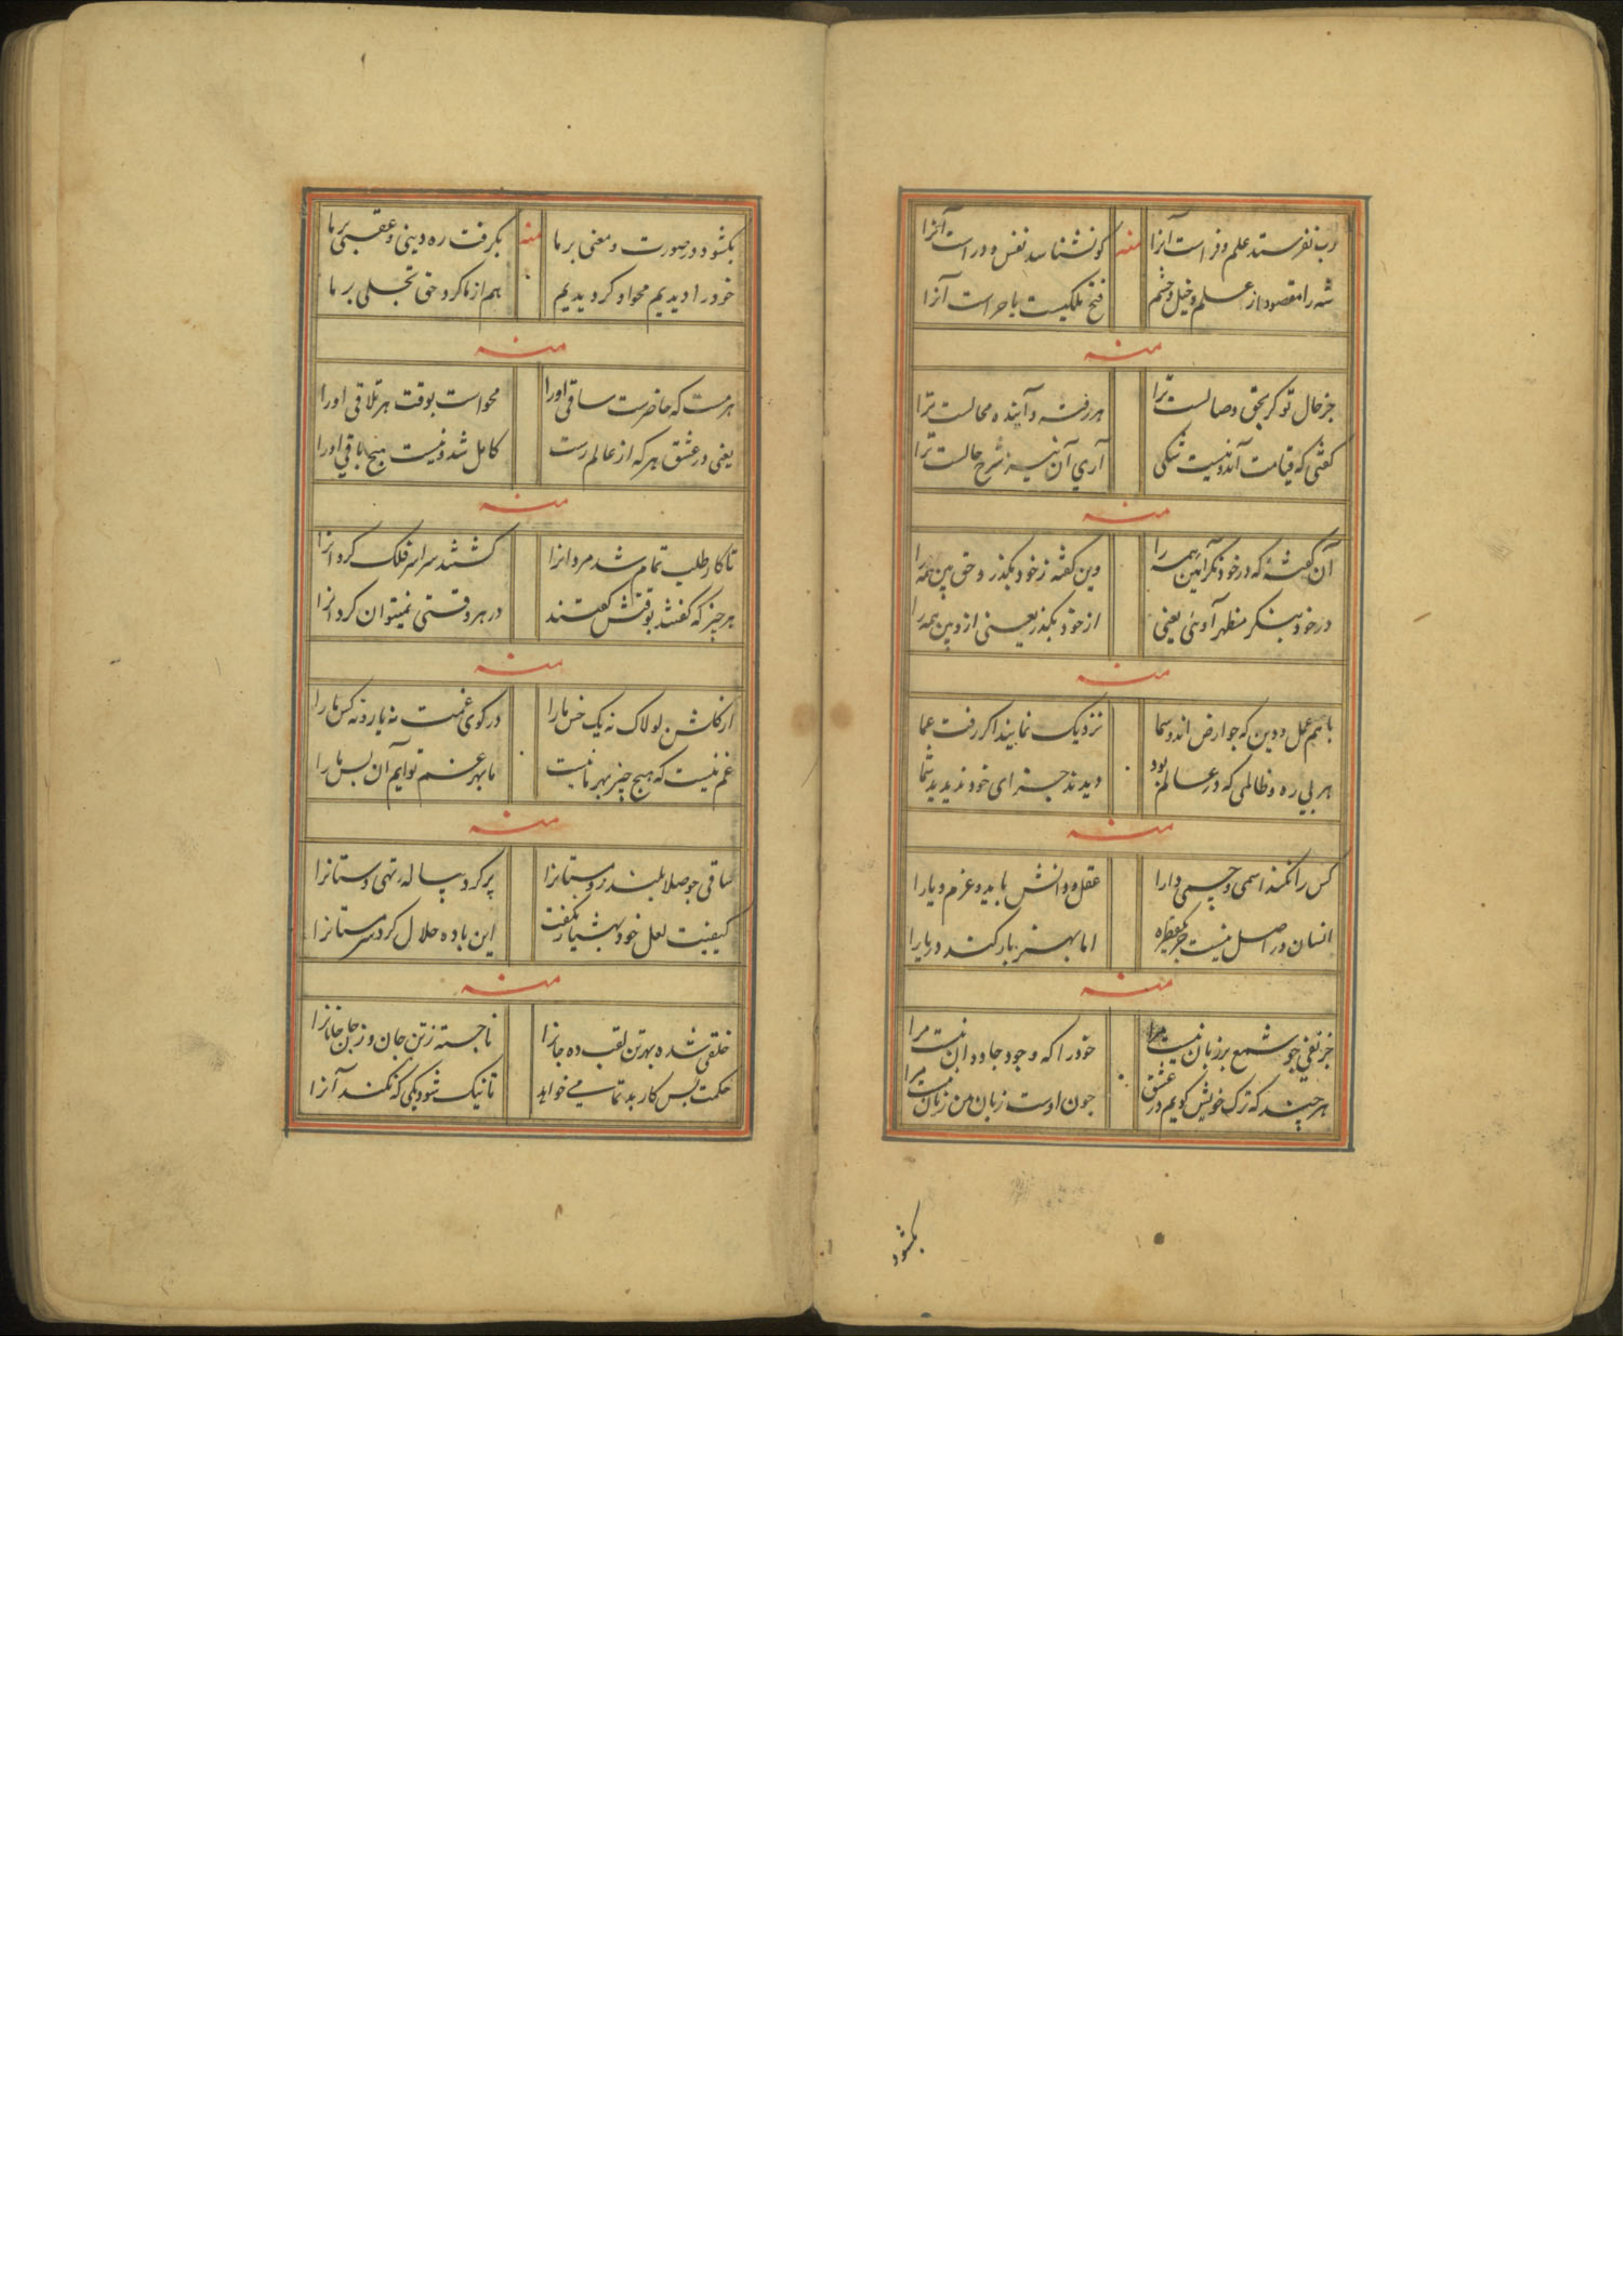 رب نفرستد علم و فراست آنرا منه کو نشناسد نفس و وراست آنرا
شه را مقصود از علم و خیل و حشم فتح ملکیست با حراست آنرا
منه
جز حال تو کر بحق وصالست ترا هر رفته و آینده محالست ترا
کفتی که قیامت آمد و نیست شکی آری آن نیز شرح حالست ترا
منه
آن کفته که در خود نکر این همه را وین کفته ز خود بکذر و حق بین همه را
در خود بنکر مظهر اوئی یعنی از خود بکذر یعنی ازو بین همه را
منه
با هم عمل و دین که جو ارض اند و سما نزدیک نمایند اکر رفت عما
هر بی ره و ظالمی که در عالم بود دیدند جزای خود ندیدید شما
منه
کس را نکند اسمی و جسمی دارا عقل و دانش باید و عزم و یارا
انسان در اصل نیست جز یک قطره اما بهنر بار کند دریارا
منه
جز نفی جو شمع بر زبان نیست مرا خود را که وجود جاودان نیست مرا
هر چند که ترک خویش کویم در عشق جون اوست زبان من زبان نیست مرا
بکشود
بکشود در صورت و معنی بر ما منه بکرفت ره دینی و عقبی بر ما
خود را دیدیم محو او کردیدیم هم از ما کرد حق تجلی بر ما
منه
هر مست که حاضرست ساقی اورا محو است بوقت هر تلاقی اورا
یعنی در عشق هر که از عالم رست کامل شد و نیست هیچ باقی اورا
منه
تا کار طلب تمام شد مردانرا کشتند سراسر فلک کردانرا
هر چیز که کفتند بوقتش کفتند در هر وقتی نمیتوان کرد آنرا
منه
از کلشن لولاک نه یک خس مارا در کوی غمت نه یار و نه کس مارا
غم نیست که هیچ چیز بهر ما نیست ما بهر غم توایم آن بس مارا
منه
ساقی جو صلا بلند زد مستانرا پر کرد پیاله تهی دستانرا
کیفیت لعل خود بهشیار نکفت این باده حلال کرد سرمستانرا
منه
خلقی شده بهر تن لقب ده جانرا ناجسته ز تن جان و ز جان جانانرا
حکمت بس کار بد تمامی خواهد تا نیک شود یکی که نکند آنرا